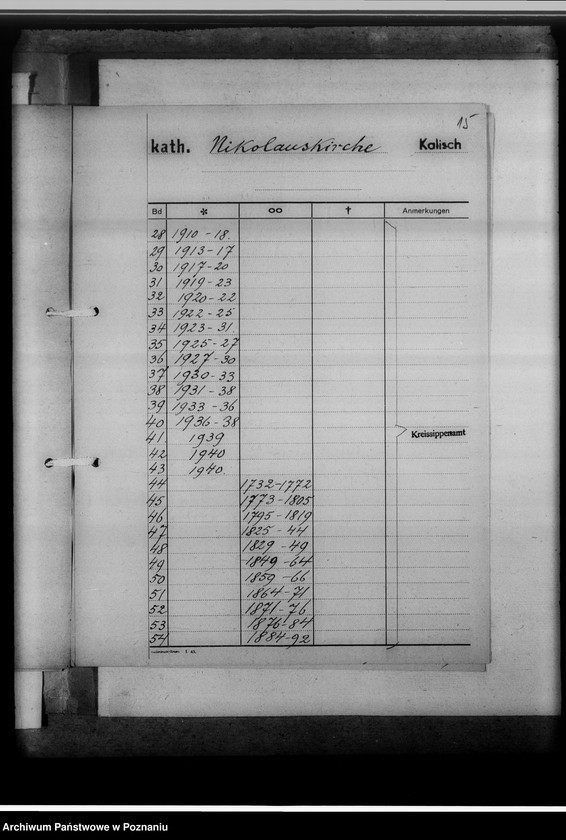 15
kath. Nikolauskirche Kalisch
Bd * oo † Anmerkungen
28 1910-18.
29 1913-17
30 1917-20
31 1919-23
32 1920-22
33 1922-25
34 1923-31.
35 1925-27
36 1927-30
37 1930-33
38 1931-38
39 1933-36
40 1936-38
41 1939 Kreissippenamt
42 1940
43 1940.
44 1732-1772
45 1773-1805
46 1795-1819
47 1825-44
48 1829-49
49 1849-64
50 1859-66
51 1864-71
52 1871-76
53 1876-84
54 1884-92
Archiwum Państwowe w Poznaniu